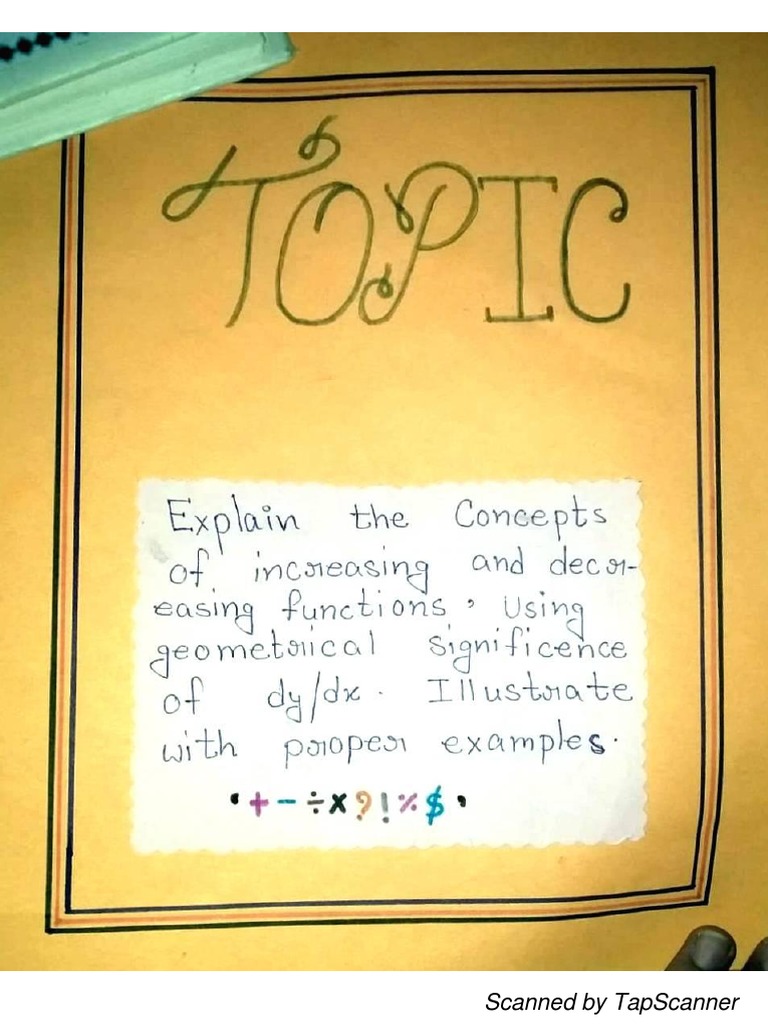 TOPIC
Explain the Concepts
of increasing and decr-
easing functions, Using
geometrical significence
of dy/dx. Illustrate
with proper examples.
‘+-÷×?!%$’
Scanned by TapScanner